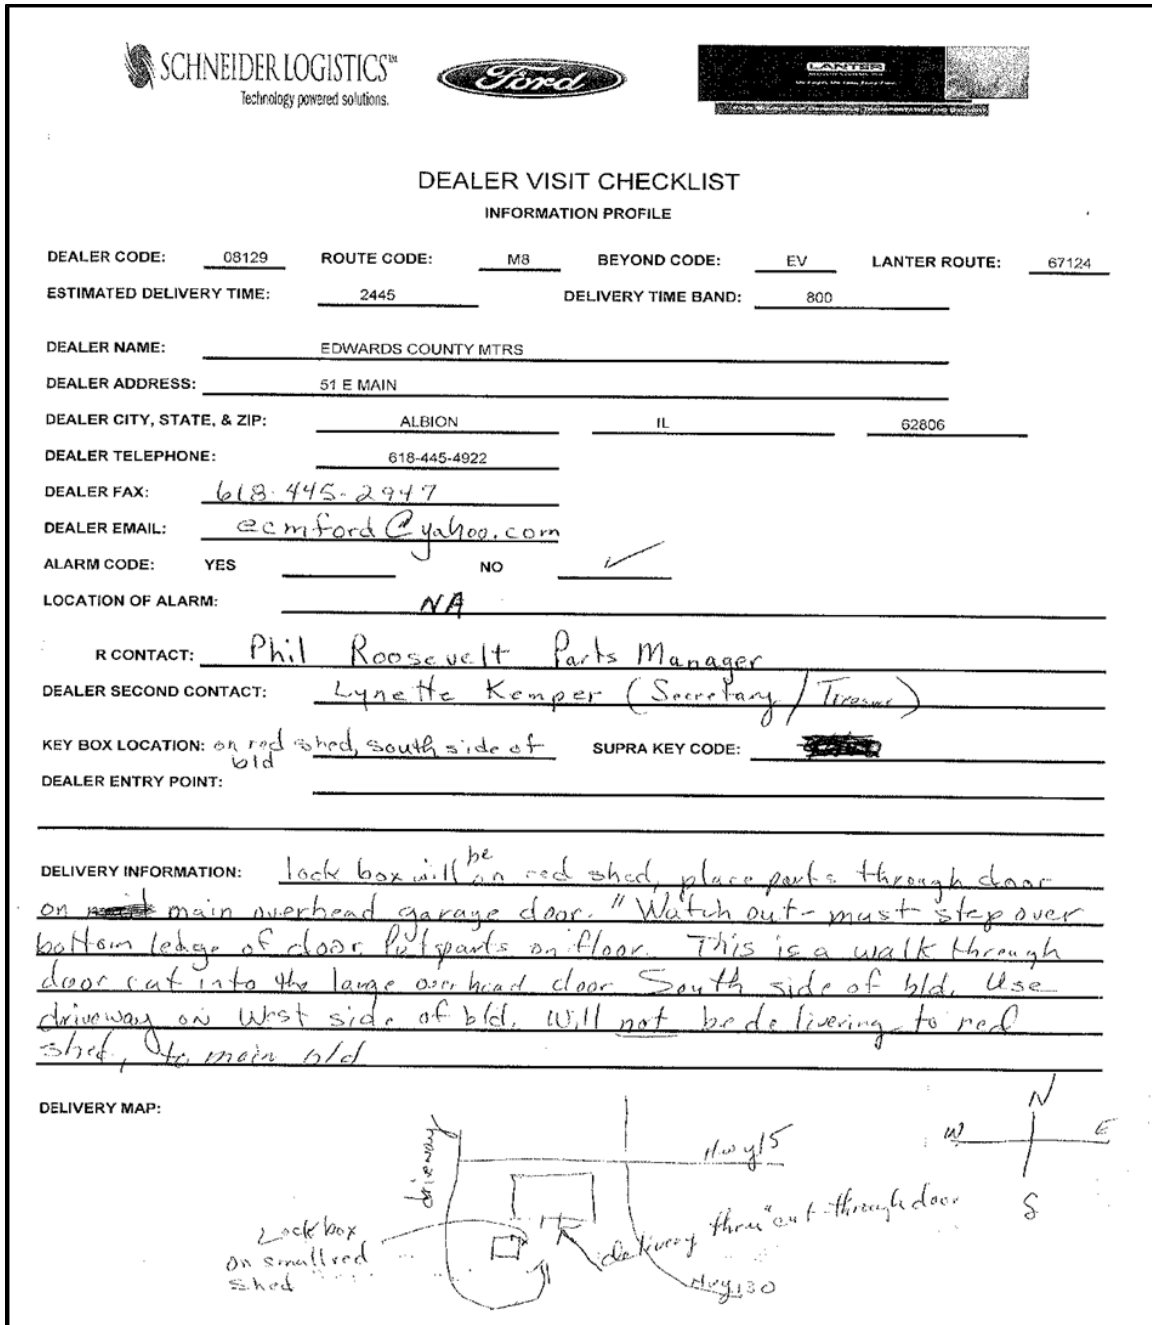 SCHNEIDER LOGISTICS™
Technology powered solutions.
Ford
LANTER
DEALER VISIT CHECKLIST
INFORMATION PROFILE
DEALER CODE: 08129 ROUTE CODE: M8 BEYOND CODE: EV LANTER ROUTE: 67124
ESTIMATED DELIVERY TIME: 2445 DELIVERY TIME BAND: 800
DEALER NAME: EDWARDS COUNTY MTRS
DEALER ADDRESS: 51 E MAIN
DEALER CITY, STATE, & ZIP: ALBION IL 62806
DEALER TELEPHONE: 618-445-4922
DEALER FAX: 618-445-2947
DEALER EMAIL: ecmford@yahoo.com
ALARM CODE: YES NO ✓
LOCATION OF ALARM: NA
R CONTACT: Phil Roosevelt Parts Manager
DEALER SECOND CONTACT: Lynette Kemper (Secretary /
KEY BOX LOCATION: on red shed, south side of SUPRA KEY CODE:
bld
DEALER ENTRY POINT:
DELIVERY INFORMATION: lock box will be on red shed, place parts through door
on main overhead garage door. "Watch out - must step over
bottom ledge of door. Put parts on floor. This is a walk through
door cut into the large overhead door South side of bld. Use
driveway on West side of bld. Will not be delivering to red
shed, to main bld
DELIVERY MAP:
N
W E
S
driveway
Hwy 15
Lock box
on small red
shed
delivery thru "cut-through door
Hwy 130